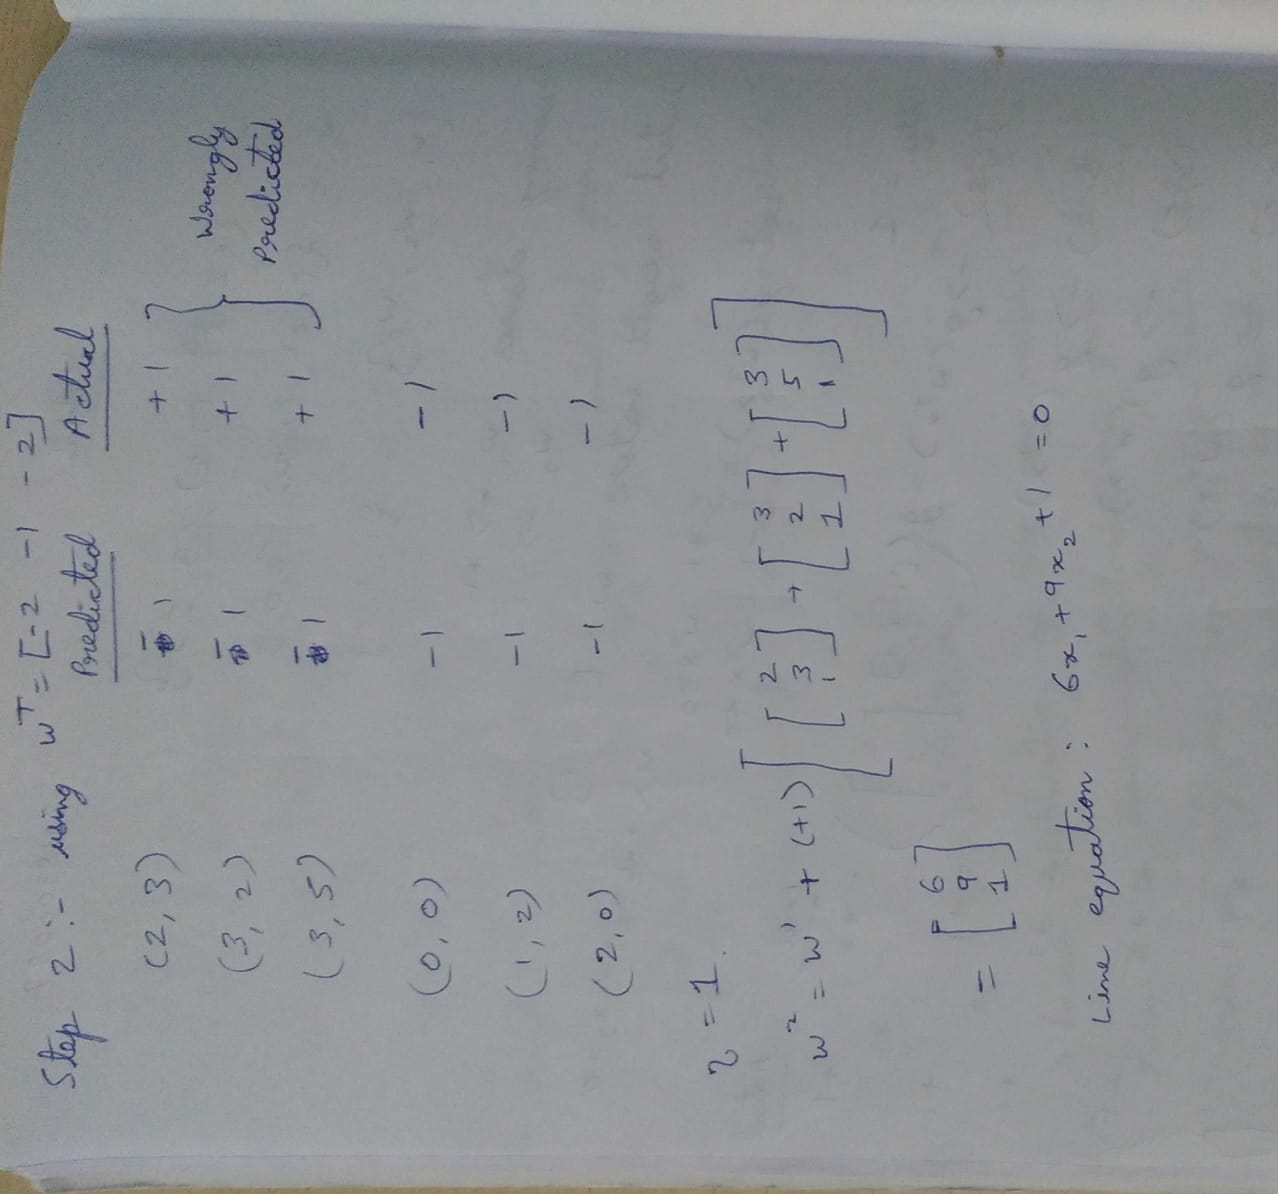 Step 2 :- using wᵀ = [-2 -1 -2]
Predicted Actual
(2, 3) -1 +1
(3, 2) -1 +1
(3, 5) -1 +1
} Wrongly
Predicted
(0, 0) -1 -1
(1, 2) -1 -1
(2, 0) -1 -1
η = 1.
w² = w¹ + (+1) [ [2 3 1] + [3 2 1] + [3 5 1] ]
= [6 9 1]
Line equation : 6x₁ + 9x₂ + 1 = 0